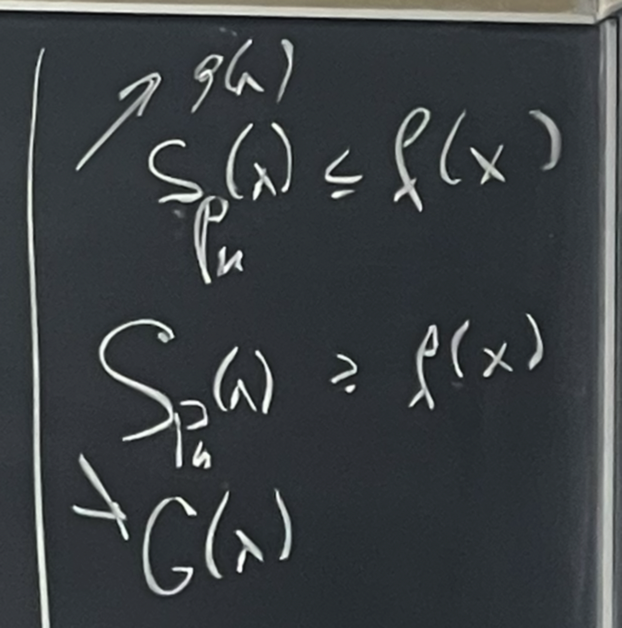 ↗ g(x)
s_{P_n}(x) ≤ f(x)
S_{P_n}(x) ≥ f(x)
↘ G(x)